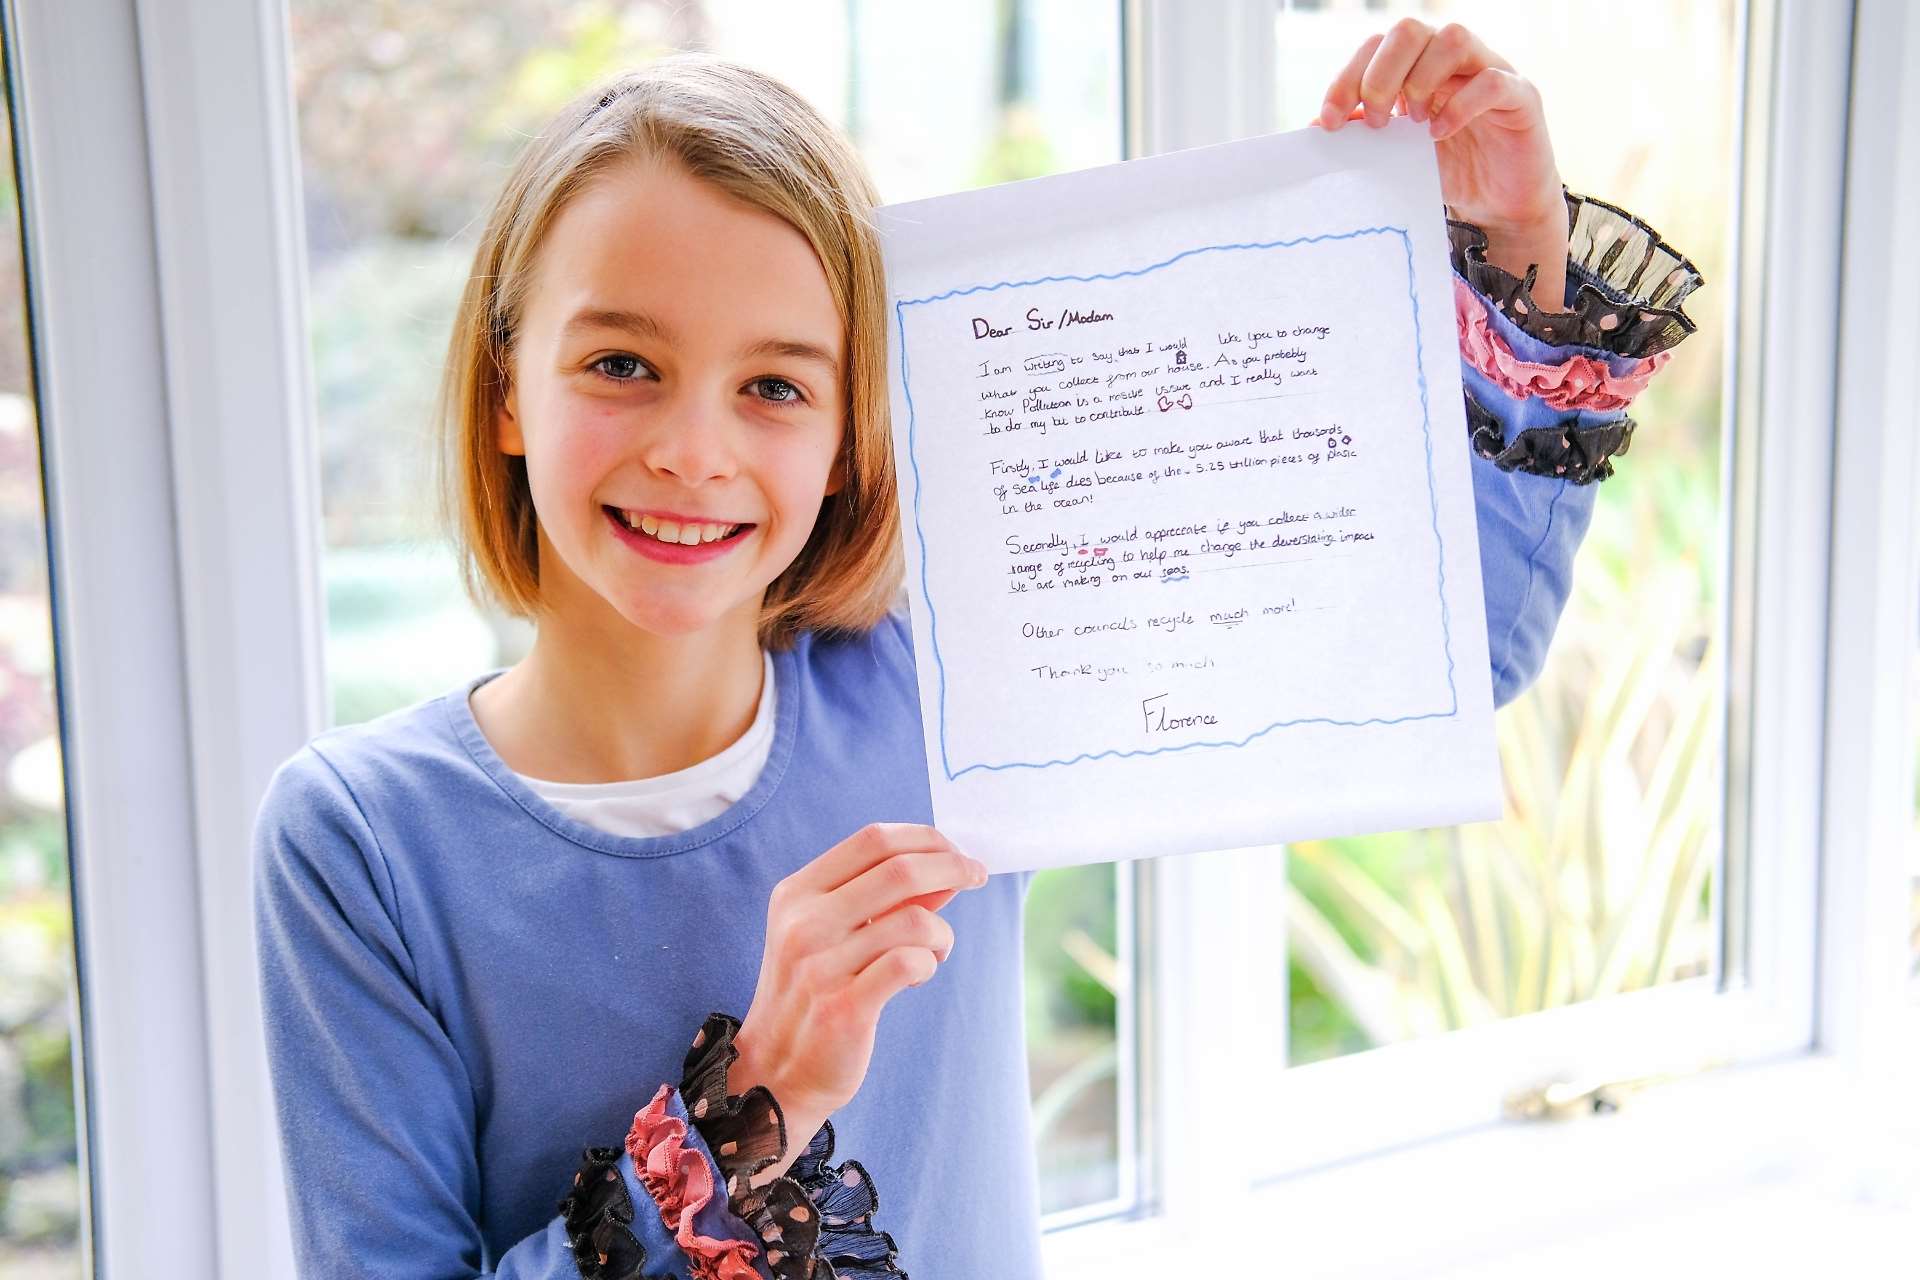 Dear Sir/Madam
I am writing to say that I would like you to change
what you collect from our house. As you probably
know Pollution is a massive issue and I really want
to do my bit to contribute.
Firstly, I would like to make you aware that thousands
of sea life dies because of the 5.25 trillion pieces of plasic
in the ocean!
Secondly, I would appreciate if you collect a wider
range of recycling to help me change the deverstating impact
We are making on our seas.
Other councils recycle much more!
Thank you so much
Florence